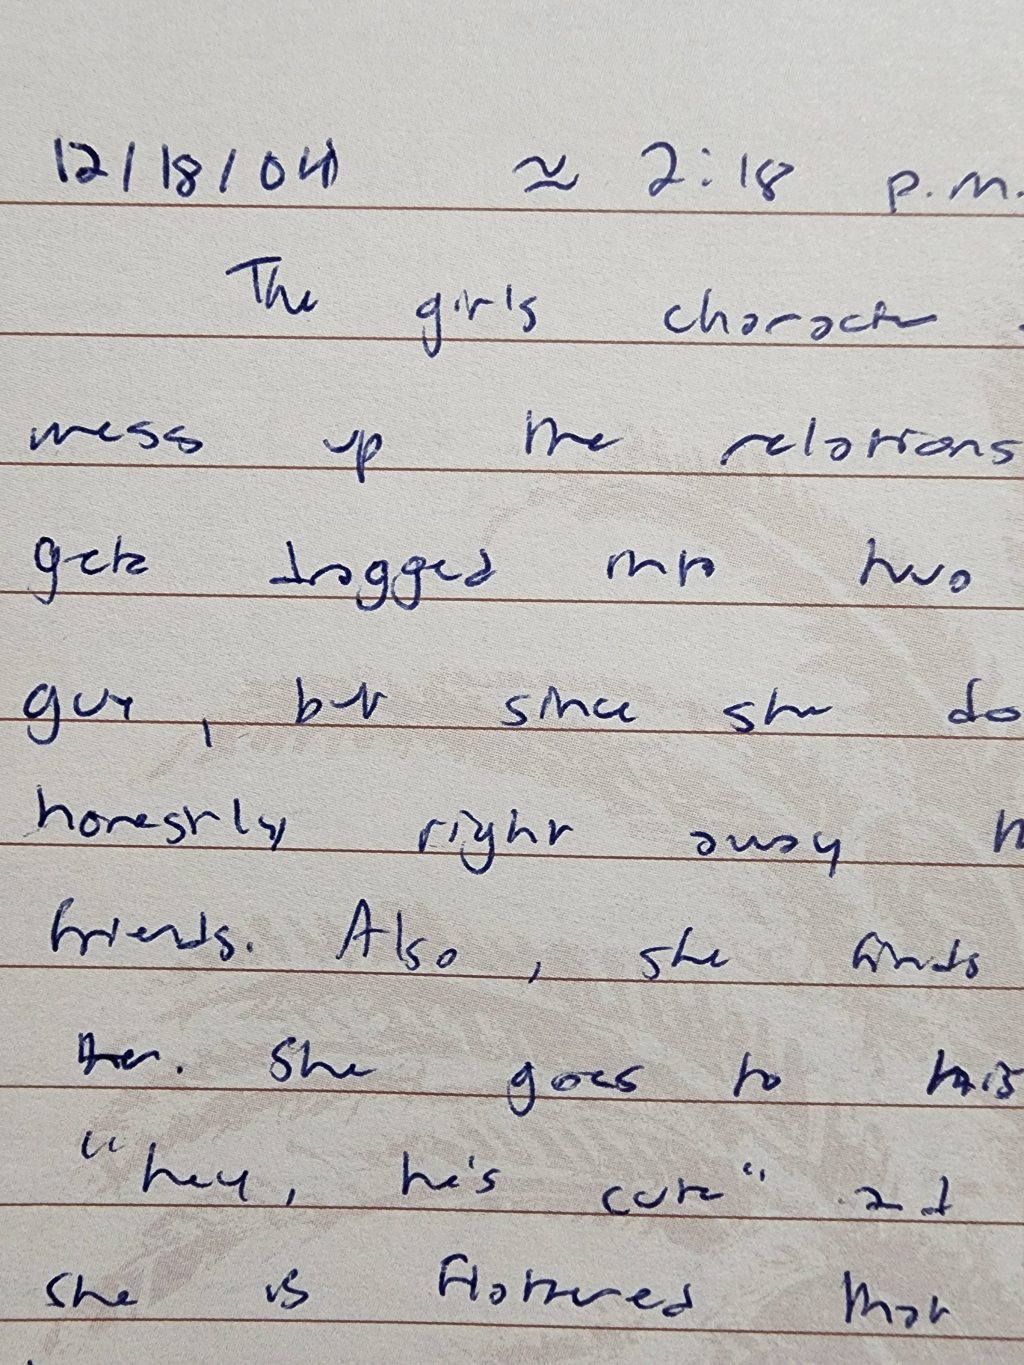 12/18/04 ≈ 2:18 p.m.
The girl's character
mess up the relations
gets dragged into two
guy, but since she do
honestly right away
friends. Also, she finds
her. She goes to this
"hey, he's cute" and
she is flattered that